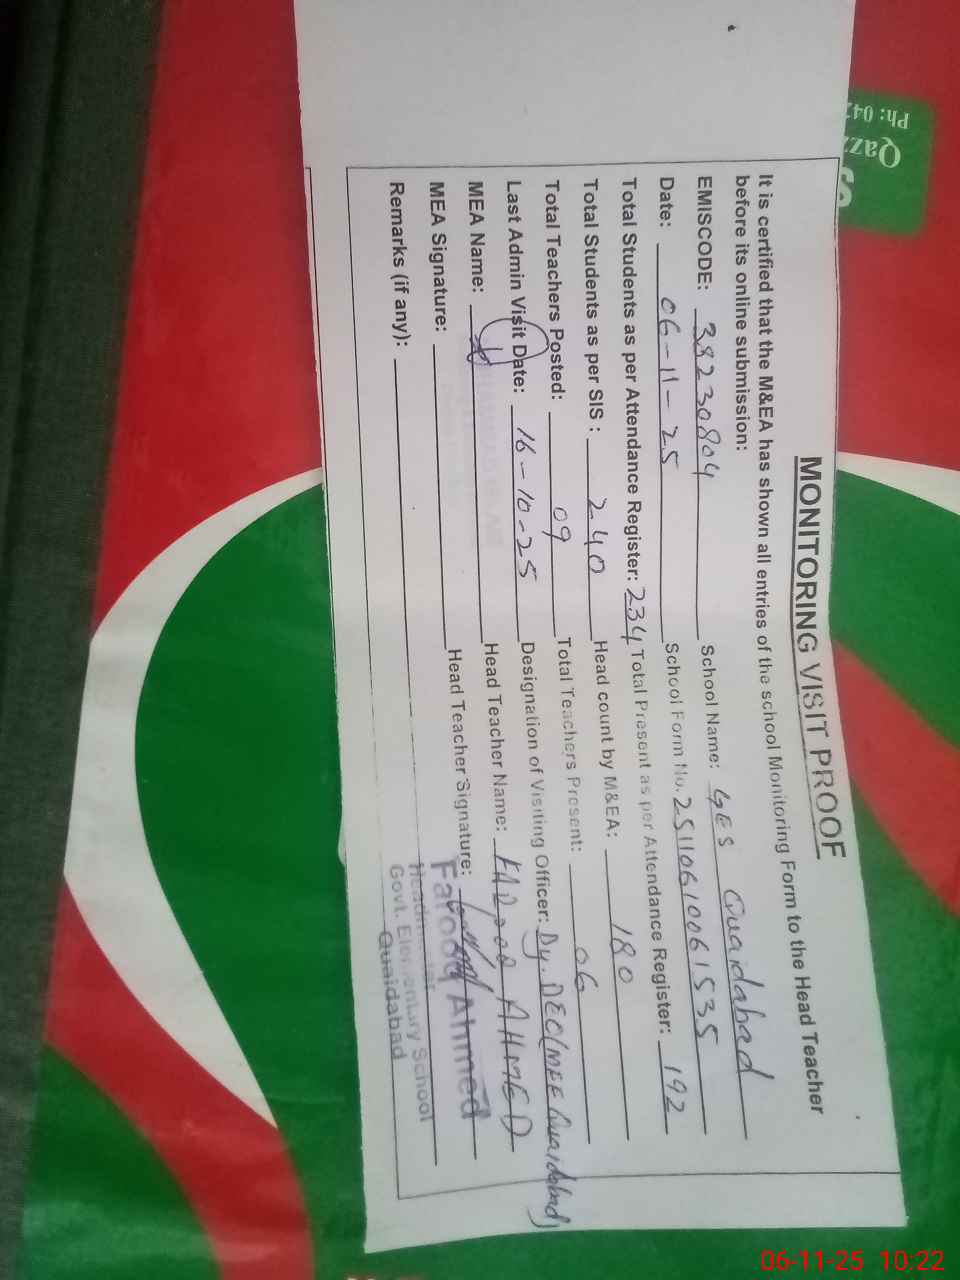 MONITORING VISIT PROOF
It is certified that the M&EA has shown all entries of the school Monitoring Form to the Head Teacher
before its online submission:
EMISCODE: 38230804 School Name: GES Quaidabad
Date: 06-11-25 School Form No. 25110610061535
Total Students as per Attendance Register: 234 Total Present as per Attendance Register: 192
Total Students as per SIS : 240 Head count by M&EA: 180
Total Teachers Posted: 09 Total Teachers Present: 06
Last Admin Visit Date: 16-10-25 Designation of Visiting Officer: Dy. DEO(MEE Quaidabad)
MEA Name: Head Teacher Name: FAROOQ AHMED
MEA Signature: Head Teacher Signature:
Farooq Ahmed
Remarks (if any):
Headmaster
Govt. Elementary School
Quaidabad
Qazz
Ph: 042
06-11-25 10:22